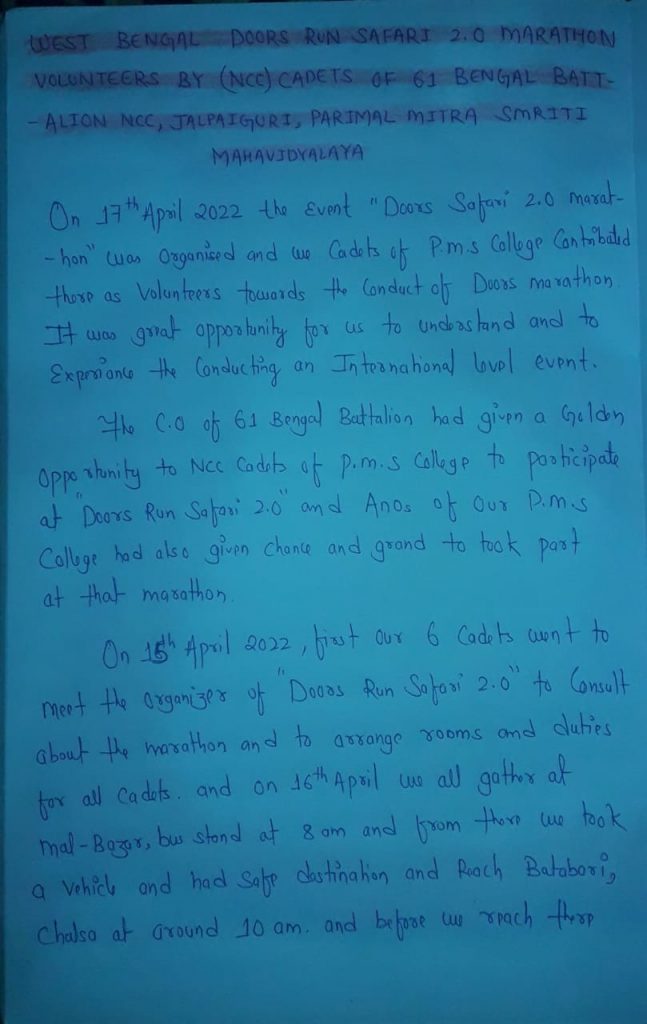 WEST BENGAL DOORS RUN SAFARI 2.0 MARATHON
VOLUNTEERS BY (NCC) CADETS OF 61 BENGAL BATT-
- ALION NCC, JALPAIGURI, PARIMAL MITRA SMRITI
MAHAVIDYALAYA
On 17th April 2022 the Event "Doors Safari 2.0 marat-
- hon" was Organised and we Cadets of P.m.s College Contribated
there as Volunteers towards the Conduct of Doors marathon.
It was great opportunity for us to understand and to
Experiance the Conducting an International level event.
The C.O of 61 Bengal Battalion had given a Golden
Opportunity to Ncc Cadets of P.m.s College to participate
at "Doors Run Safari 2.0" and Anos of Our P.m.s
College had also given Chance and grand to took part
at that marathon.
On 15th April 2022, first our 6 Cadets went to
meet the organizer of "Doors Run Safari 2.0" to Consult
about the marathon and to arrange rooms and duties
for all Cadets. and on 16th April we all gather at
mal-Bazar, bus stand at 8 am and from there we took
a Vehicle and had Safe dastination and Reach Batabari,
Chalsa at around 10 am. and before we reach there